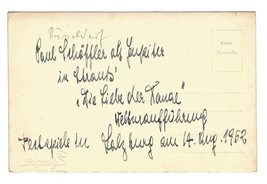 Düsseldorf
Paul Schöffler als Jupiter
in Strauss'
"Die Liebe der Danae"
Welturaufführung
Festspiele in Salzburg am 14. Aug. 1952